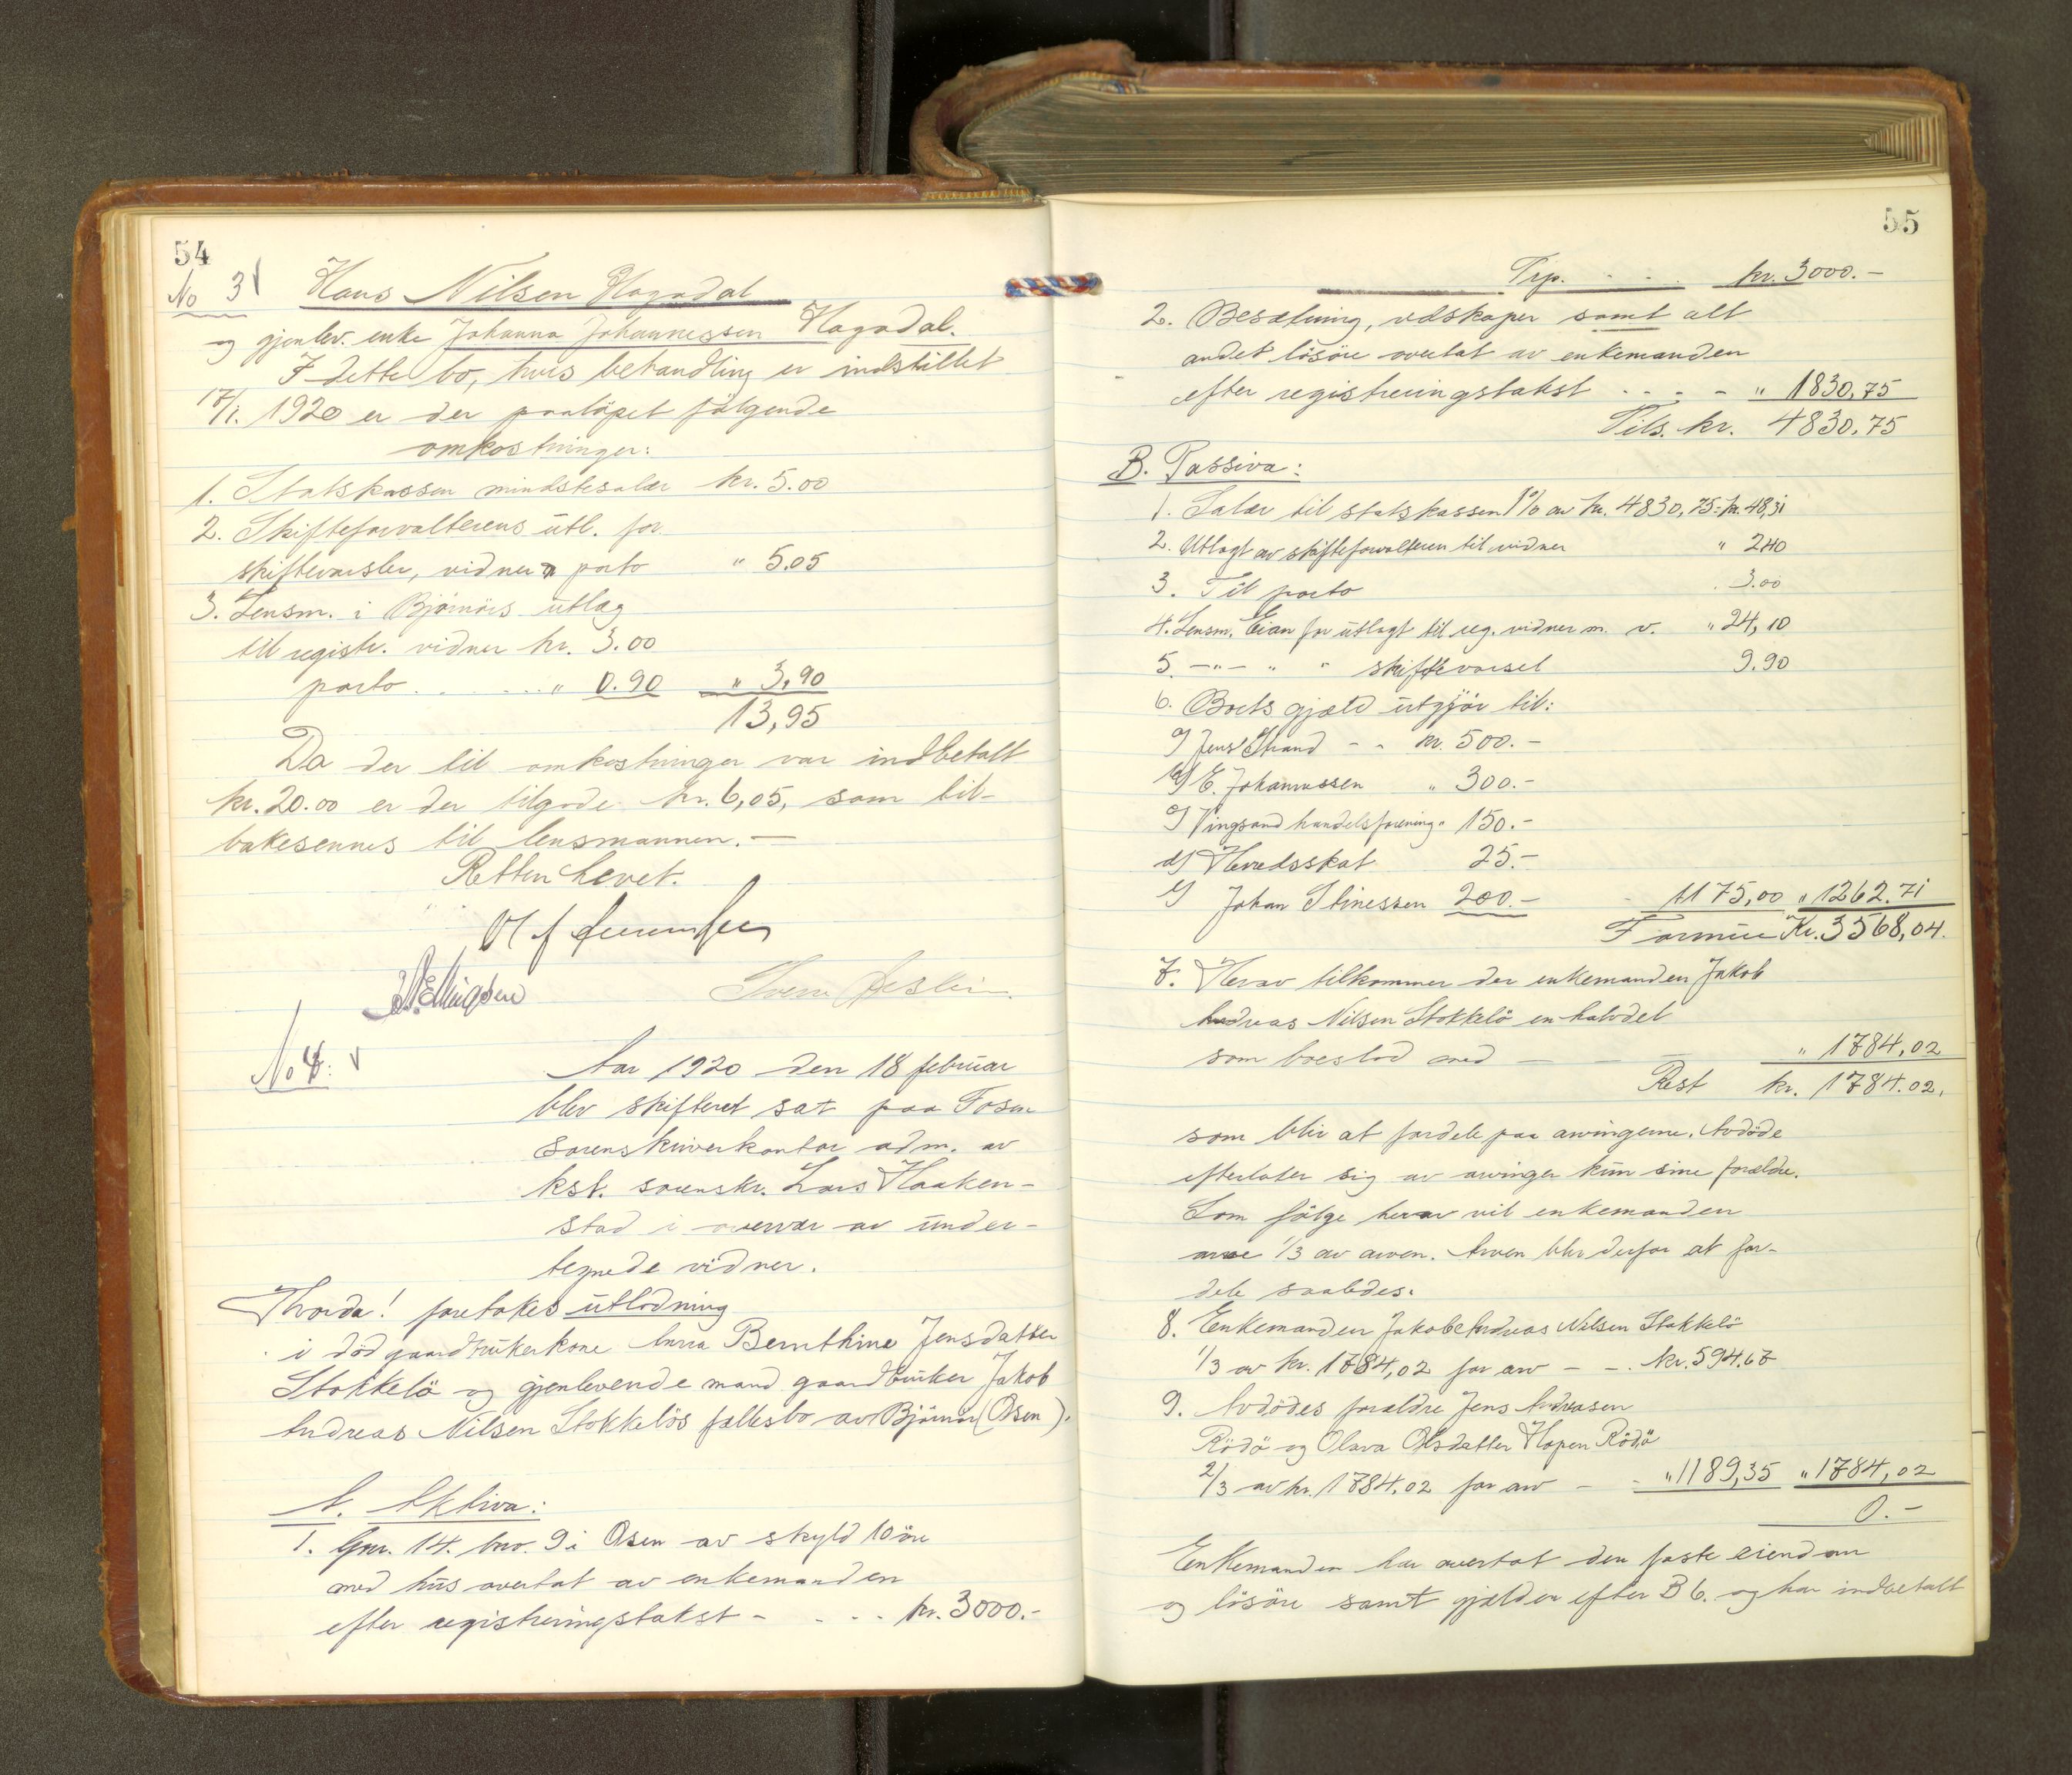 54
No 3
Hans Nilsen Hagadal
og gjenlev. enke Johanna Johannessen Hagadal.
I dette bo, hvis behandling er indstillet
17/1. 1920 er der paaløpet følgende
omkostninger:
1. Statskassen mindstesalær kr. 5.00
2. Skifteforvalterens utl. for
skiftevarsler, vidner porto " 5.05
3. Lensm. i Bjørnörs utlæg
til registr. vidner kr. 3.00
porto . . . . " 0.90 " 3,90
13,95
Da der til omkostninger var indbetalt
kr. 20.00 er der tilgode kr. 6,05, som til-
bakesennes til lensmannen. —
Retten hevet.
No 4:
Aar 1920 den 18 februar
blev skifteret sat paa Fosen
sorenskriverkontor adm. av
kst. sorenskr. Lars Haaken-
stad i overvær av under-
tegnede vidner.
Hvorda! foretokes utlodning
i död gaardbrukerkone Anna Bernthine Jensdatter
Stokkelö og gjenlevende mand gaardbruker Jakob
Andreas Nilsen Stokkelös fællesbo av Bjørnör (Osen).
A. Aktiva:
1. Gnr. 14. bnr. 9 i Osen av skyld 10 öre
med hus overtat av enkemanden
efter registreringstakst - . . . kr. 3000.-
55
Trp. . . . kr. 3000.-
2. Besætning, redskaper samt alt
andet lösöre overtat av enkemanden
efter registreringstakst . . . - " 1830,75
Tils. kr. 4830,75
B. Passiva:
1. Salær til statskassen 1% av kr. 4830,75 = kr. 48,31
2. Utlagt av skifteforvalteren til vidner " 2.40
3. Til porto 3.00
4. Lensm. Eian for utlagt til reg. vidner m. v. " 24,10
5. -"- " " skiftevarsel 9.90
6. Boets gjæld utgjör til:
a) Jens Strand - - kr. 500.-
b) E. Johannessen " 300.-
c) Vingsand handelsforening " 150.-
d) Herredsskat 25.-
e) Johan Stinessen 200.- - 1175,00 " 1262.71
Formue Kr. 3568,04.
7. Herav tilkommer der enkemanden Jakob
Andreas Nilsen Stokkelö en halvdel
som boeslod med — — " 1784,02
Rest kr. 1784.02.
som blir at fordele paa arvingerne. Avdöde
efterlater sig av arvinger kun sine forældre.
Som fölge herav vil enkemanden
arve 1/3 av arven. Arven blir derfor at for-
dele saaledes.
8. Enkemanden Jakob Andreas Nilsen Stokkelö
1/3 av kr. 1784,02 for arv - - . kr. 594.67
9. Avdödes forældre Jens Andreasen
Rödö og Olava Olsdatter Hopen Rödö
2/3 av kr. 1784.02 for arv - - " 1189,35 " 1784,02
0.-
Enkemanden har overtat den faste eiendom
og lösöre samt gjælden efter B 6. og har indbetalt